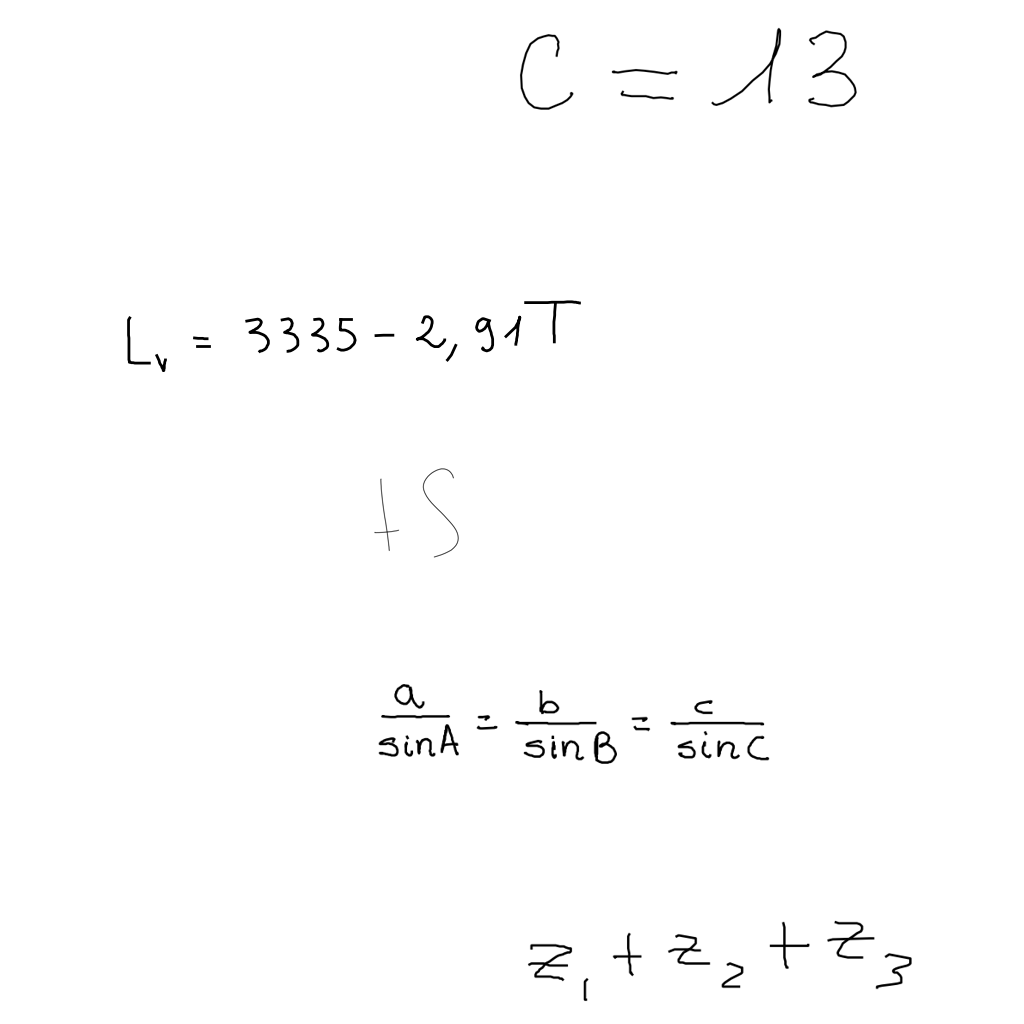 C = 13
L_v = 3335 - 2,91T
+S
\frac{a}{\sin A} = \frac{b}{\sin B} = \frac{c}{\sin C}
z_1 + z_2 + z_3